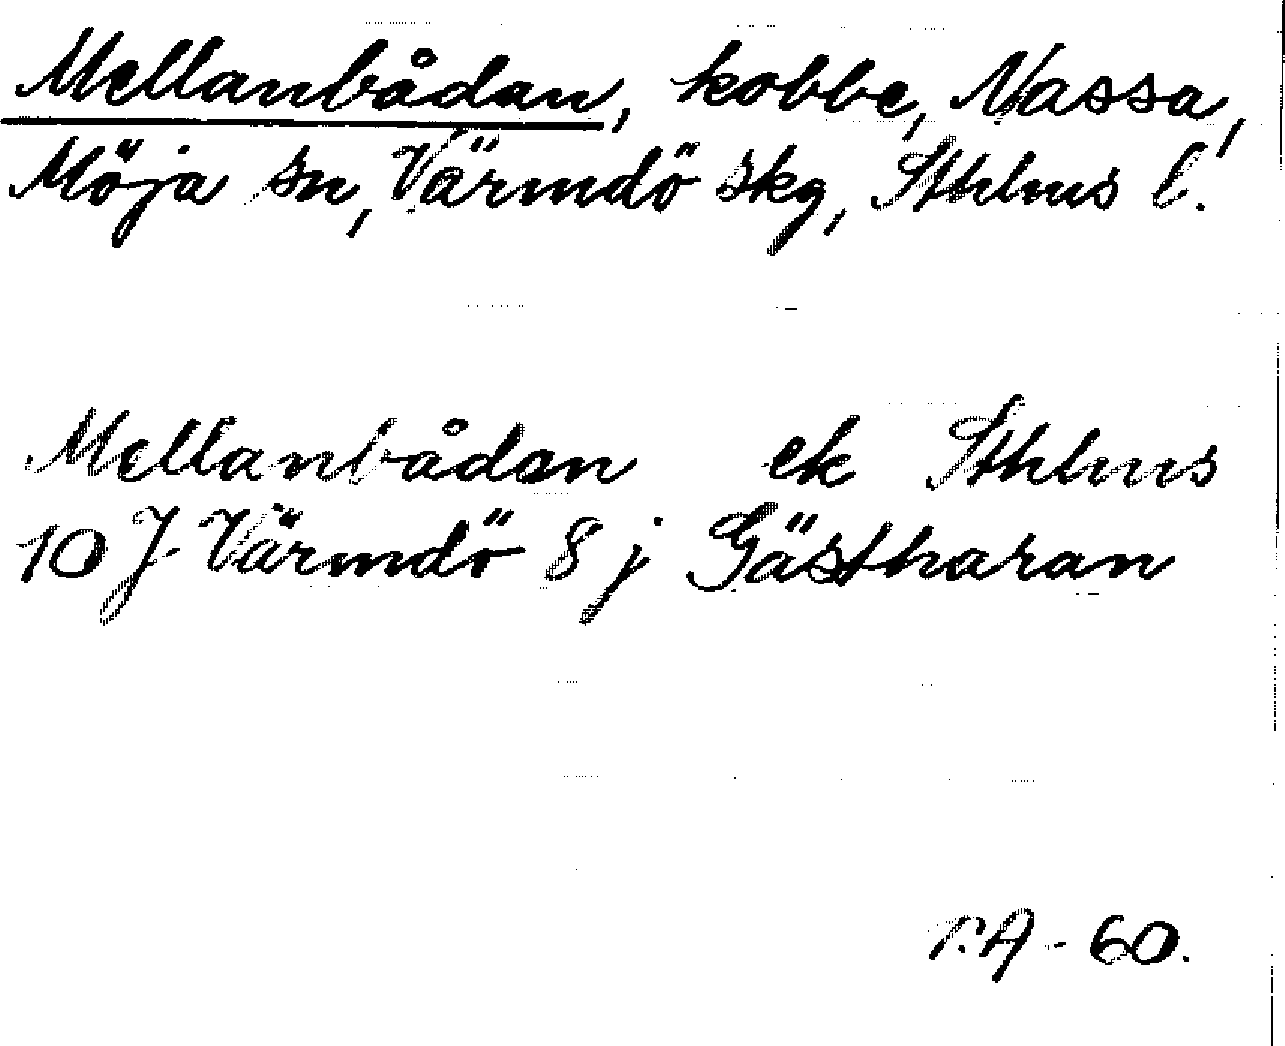 Mellanbådan, kobbe, Nassa,
Möja sn, Värmdö skg, Sthlms l.
Mellanbådan ek Sthlms
10 J Värmdö 8 j Gästharan
r.A - 60.